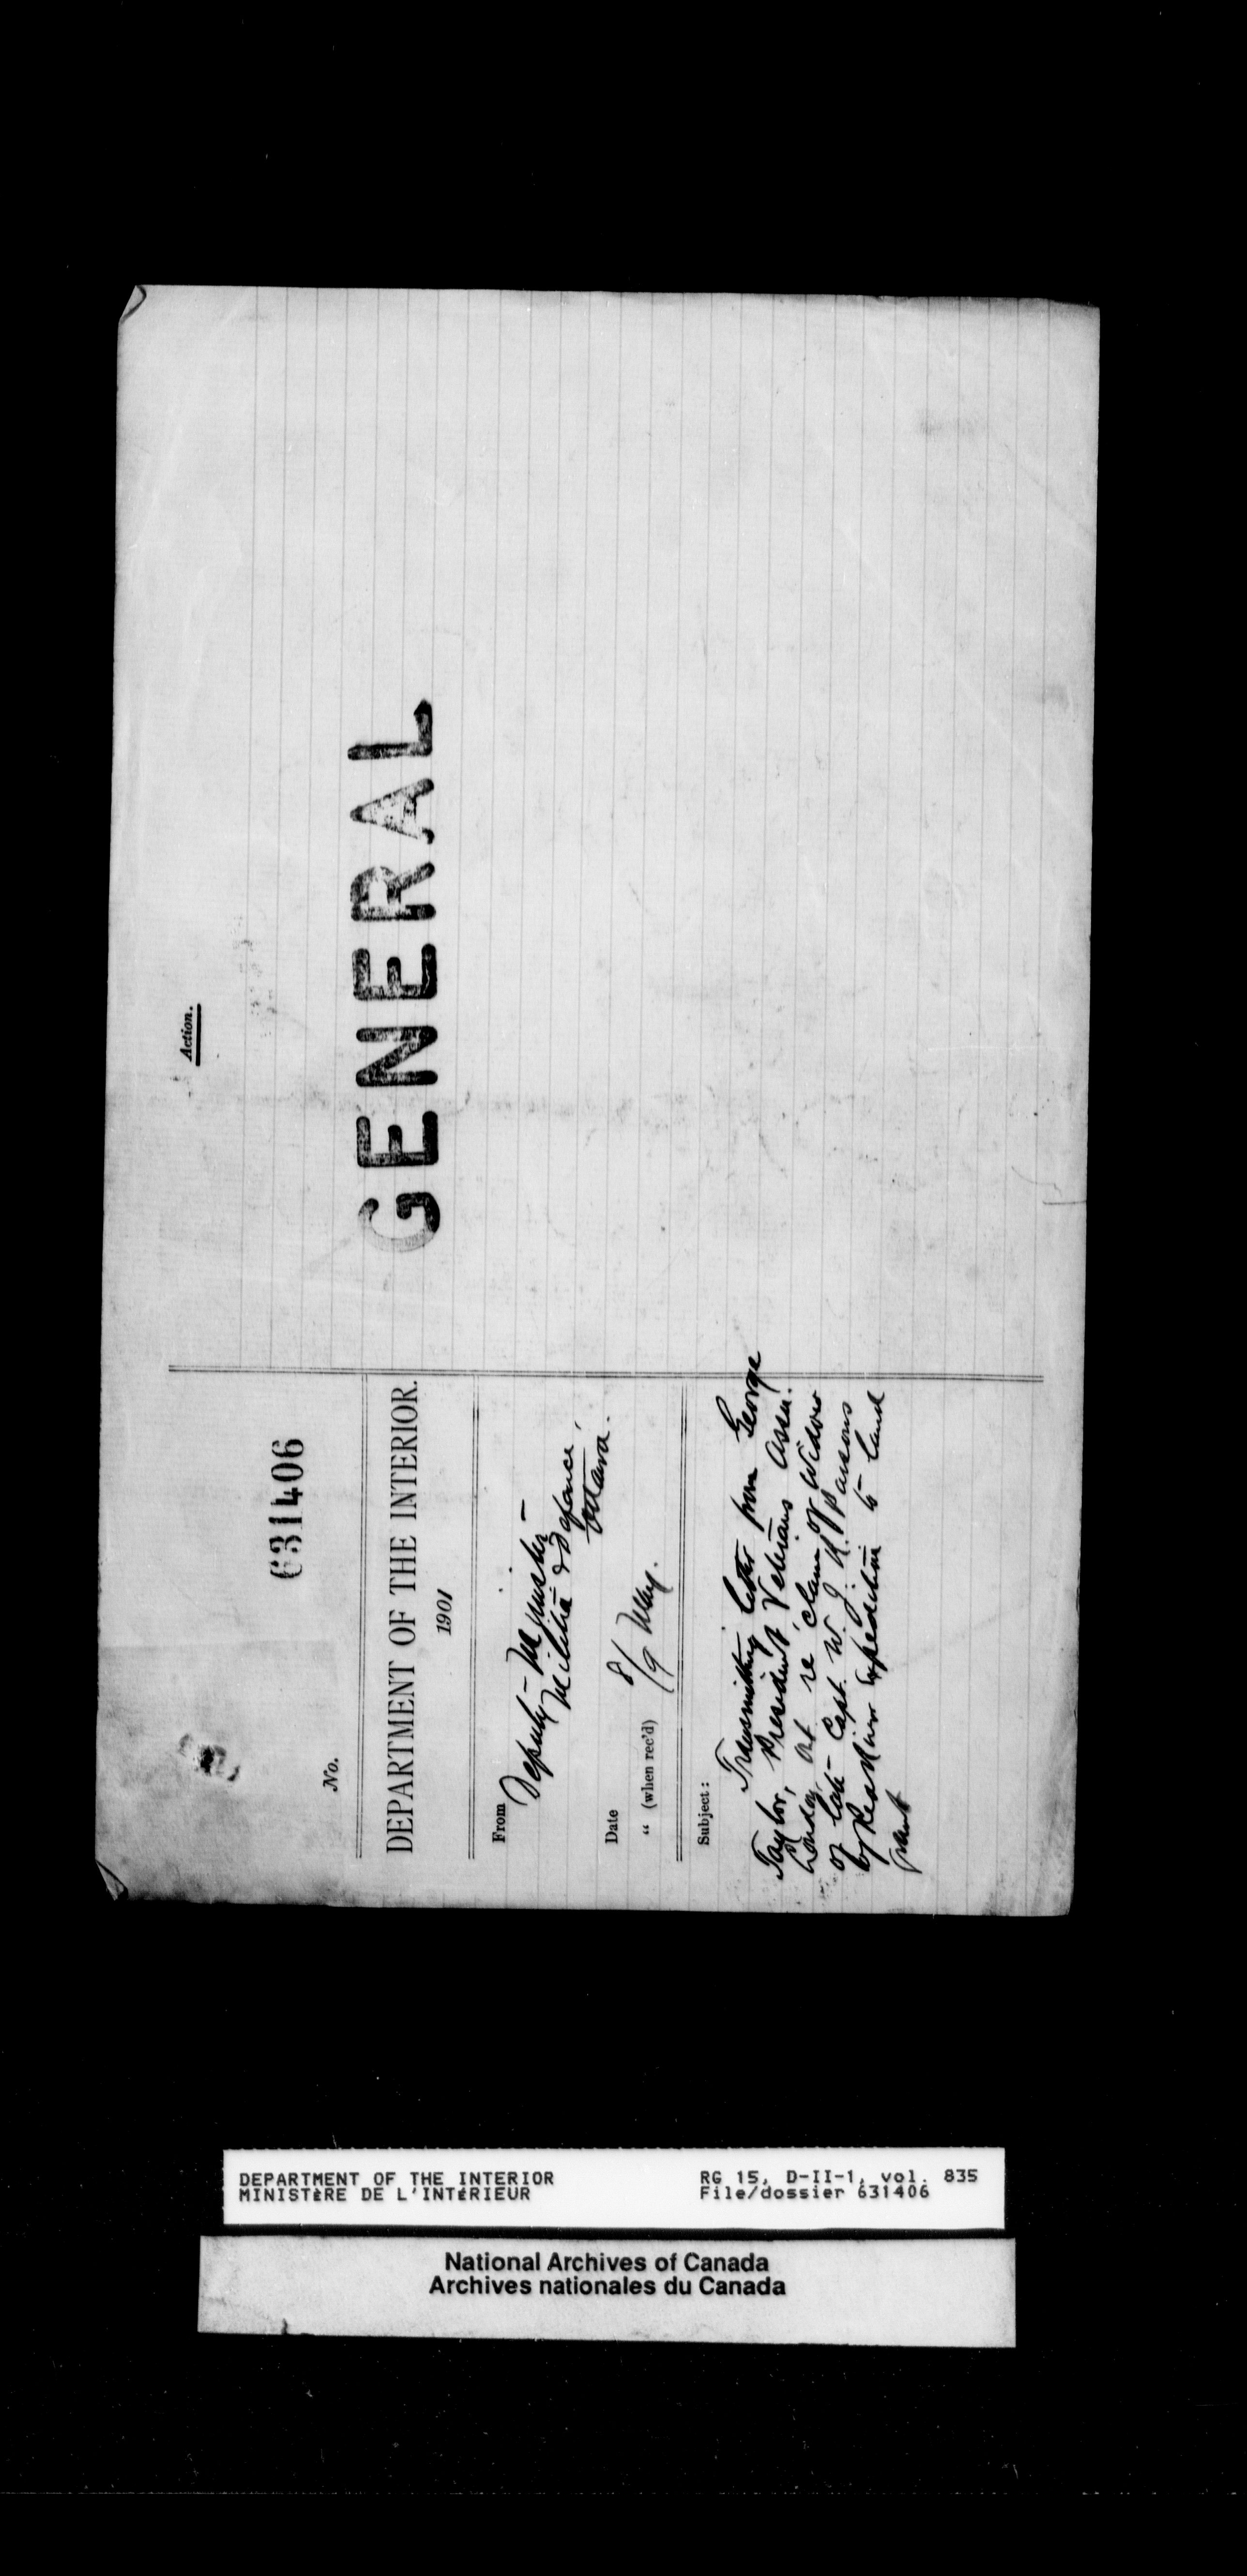 631406
No.
DEPARTMENT OF THE INTERIOR.
1901
From
Deputy-Minister-
Militia & Defence,
Ottawa.
Date 8/
" (when rec'd) 9 May.
Subject:
Transmitting letter from George
Taylor, President Veterans Assn.
London, Ont re claim of Widow
of late Capt. W. J. R. Parsons
Red River Expedition to land
grant
Action.
GENERAL
DEPARTMENT OF THE INTERIOR
MINISTÈRE DE L'INTÉRIEUR
RG 15, D-II-1, vol. 835
File/dossier 631406
National Archives of Canada
Archives nationales du Canada